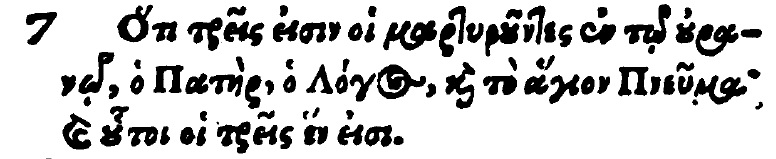 7 Ὅτι τρεῖς εἰσιν οἱ μαρτυροῦντες ἐν τῷ οὐρα-
νῷ, ὁ Πατὴρ, ὁ Λόγος, καὶ τὸ ἅγιον Πνεῦμα·
καὶ οὗτοι οἱ τρεῖς ἕν εἰσι.